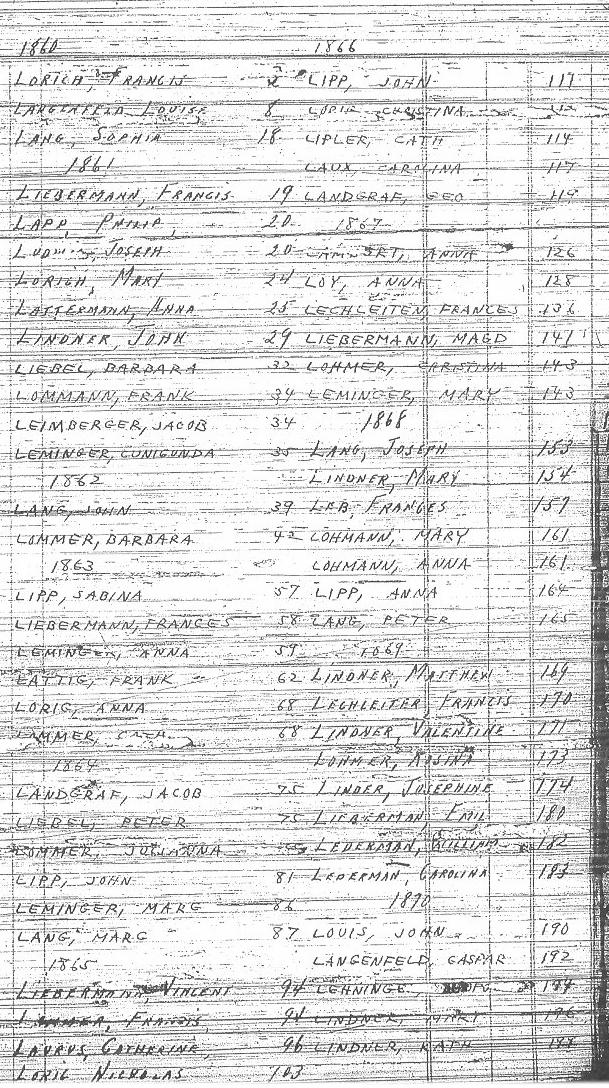 1860
LORICH, FRANCIS 2
LANGENFELD, LOUISE 8
LANG, SOPHIA 18
1861
LIEBERMANN, FRANCIS 19
LAPP, PHILIP, 20
JOSEPH 20
LORICH, MARY 24
LATTERMANN, ANNA 25
LINDNER, JOHN 29
LIEBEL, BARBARA 32
LOMMANN, FRANK 34
LEIMBERGER, JACOB 34
LEMINGER, CUNIGUNDA 35
1862
LANG, JOHN 39
LOMMER, BARBARA 42
1863
LIPP, SABINA 57
LIEBERMANN, FRANCES 58
LEMINGER, ANNA 59
LATTIG, FRANK 62
LORIG, ANNA 68
CATH. 68
1864
LANDGRAF, JACOB 75
LIEBEL, PETER 75
LOMMER, JULIANNA
LIPP, JOHN 81
LEMINGER, MARG 86
LANG, MARG 87
1865
LIEBERMANN, VINCENT 94
FRANCIS, 94
LAURUS, CATHERINE, 96
LORIG NICHOLAS 103
1866
LIPP, JOHN 117
CHRISTINA
LIPLER, CATH 114
LAUX, CAROLINA 117
LANDGRAF, GEO 119
1867
ANNA 126
LOY, ANNA 128
LECHLEITEN, FRANCES 136
LIEBERMANN, MAGD 141
LOHMER, CHRISTINA 143
LEMINGER, MARY 143
1868
LANG, JOSEPH 153
LINDNER, MARY 154
LEB, FRANCES 157
LOHMANN, MARY 161
LOHMANN, ANNA 161
LIPP, ANNA 164
LANG, PETER 165
1869
LINDNER, MATTHEW 169
LECHLEITER, FRANCIS 170
LINDNER, VALENTINE 171
LOHMER, ROSINA 173
LINDER, JOSEPHINE 174
LIEBERMAN, EMIL 180
LEDERMAN, WILLIAM 182
LEDERMAN, CAROLINA 183
1870
LOUIS, JOHN 190
LANGENFELD, CASPAR 192
LEHNINGE, 194
LINDNER, 196
LINDNER, KATH